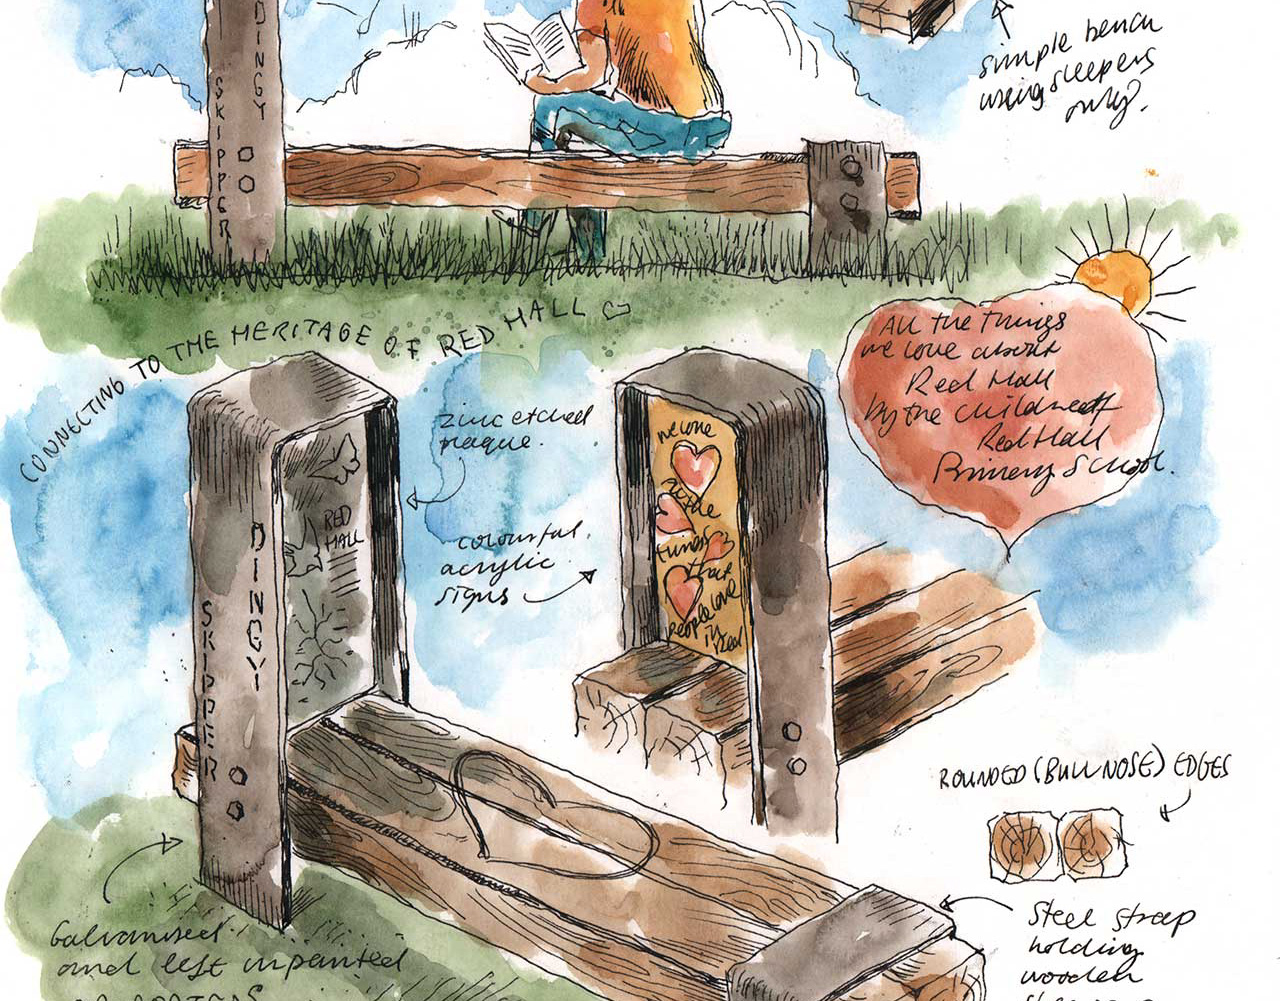 DINGY
SKIPPER
simple bench
using sleepers
only?.
CONNECTING TO THE HERITAGE OF RED HALL
All the things
we love about
Red Hall
by the children of
Red Hall
Primery School.
zinc etched
plaque.
colourful,
acrylic
signs
RED
HALL
DINGY
SKIPPER
we love
the
things
that
people love
in
Red
ROUNDED (BULLNOSE) EDGES
Steel strap
holding
wooden
Galvanised
and left unpainted